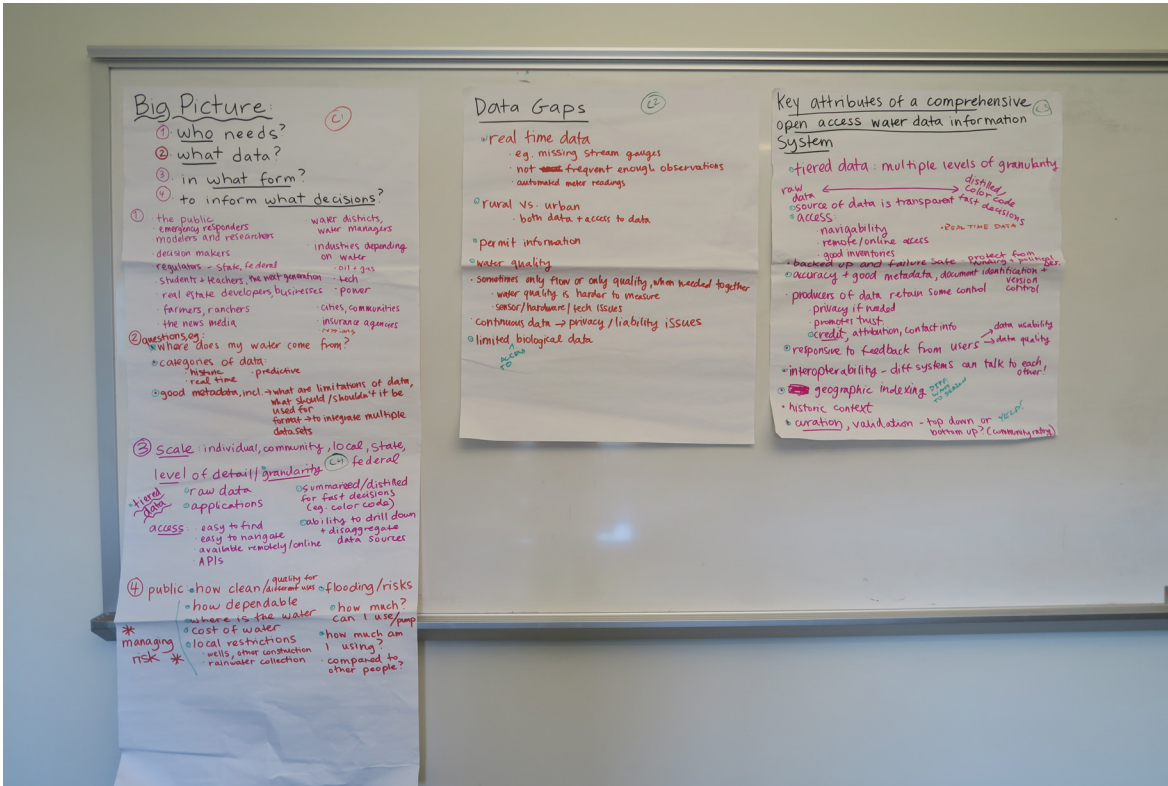 Big Picture:
C1
① who needs?
② what data?
③ in what form?
④ to inform what decisions?
① the public
emergency responders
modelers and researchers
decision makers
regulators - state, federal
students + teachers, the next generation
real estate developers, businesses
farmers, ranchers
the news media
· water districts,
water managers
· industries depending
on water
· oil + gas
· tech
· power
· cities, communities
· insurance agencies
② questions, eg:
where does my water come from?
categories of data:
· historic
· predictive
· real time
good metadata, incl. → what are limitations of data,
what should/shouldn't it be
used for
format → to integrate multiple
data sets
③ Scale: individual, community, local, State,
federal
level of detail/granularity
C4
· tiered
data
raw data
applications
summarized/distilled
for fast decisions
(eg. color code)
ability to drill down
+ disaggregate
data sources
access:
· easy to find
· easy to navigate
· available remotely/online
· APIs
④ public
how clean/quality for
different uses
how dependable
where is the water
cost of water
local restrictions
· wells, other construction
· rainwater collection
flooding/risks
how much?
can I use/pump
how much am
I using?
· compared to
other people?
* managing
risk *
Data Gaps
C2
real time data
· eg. missing stream gauges
· not frequent enough observations
· automated meter readings
rural vs. urban
· both data + access to data
permit information
water quality
· sometimes only flow or only quality, when needed together
· water quality is harder to measure
· sensor/hardware/tech issues
· continuous data → privacy/liability issues
limited biological data
ACCESS
TO
Key attributes of a comprehensive
open access water data information
System
C3
tiered data: multiple levels of granularity
raw
data
distilled/
color code
fast decisions
source of data is transparent
access:
· navigability
· REAL TIME DATA
· remote/online access
· good inventories
· backed up and failure safe - protect from
accuracy + good metadata, document identification +
version
control
· producers of data retain some control
· privacy if needed
· promotes trust
credit, attribution, contact info
responsive to feedback from users
→ data usability
→ data quality
· interopterability - diff systems can talk to each
other!
geographic indexing
DIFF.
WAYS
TO SEARCH
· historic context
curation, validation - top down or
bottom up? (community rating)
YELP!